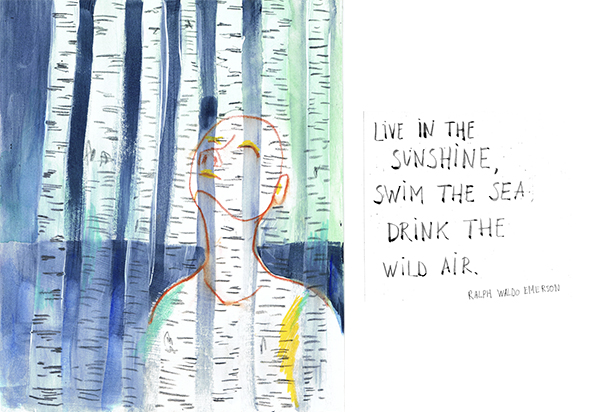 LIVE IN THE
SUNSHINE,
SWIM THE SEA,
DRINK THE
WILD AIR.
RALPH WALDO EMERSON